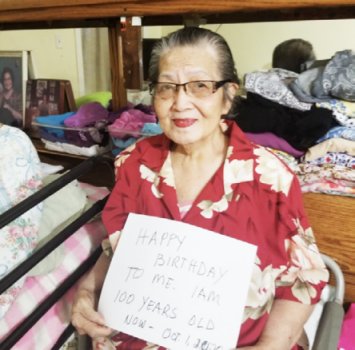 HAPPY
BIRTHDAY
TO ME. IAM
100 YEARS OLD
NOW- Oct. 1,